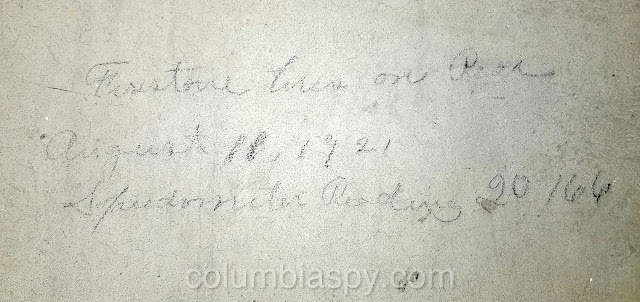 Firestone tires on Rear
August 18, 1921
Speedometer Reading 20166
columbiaspy.com